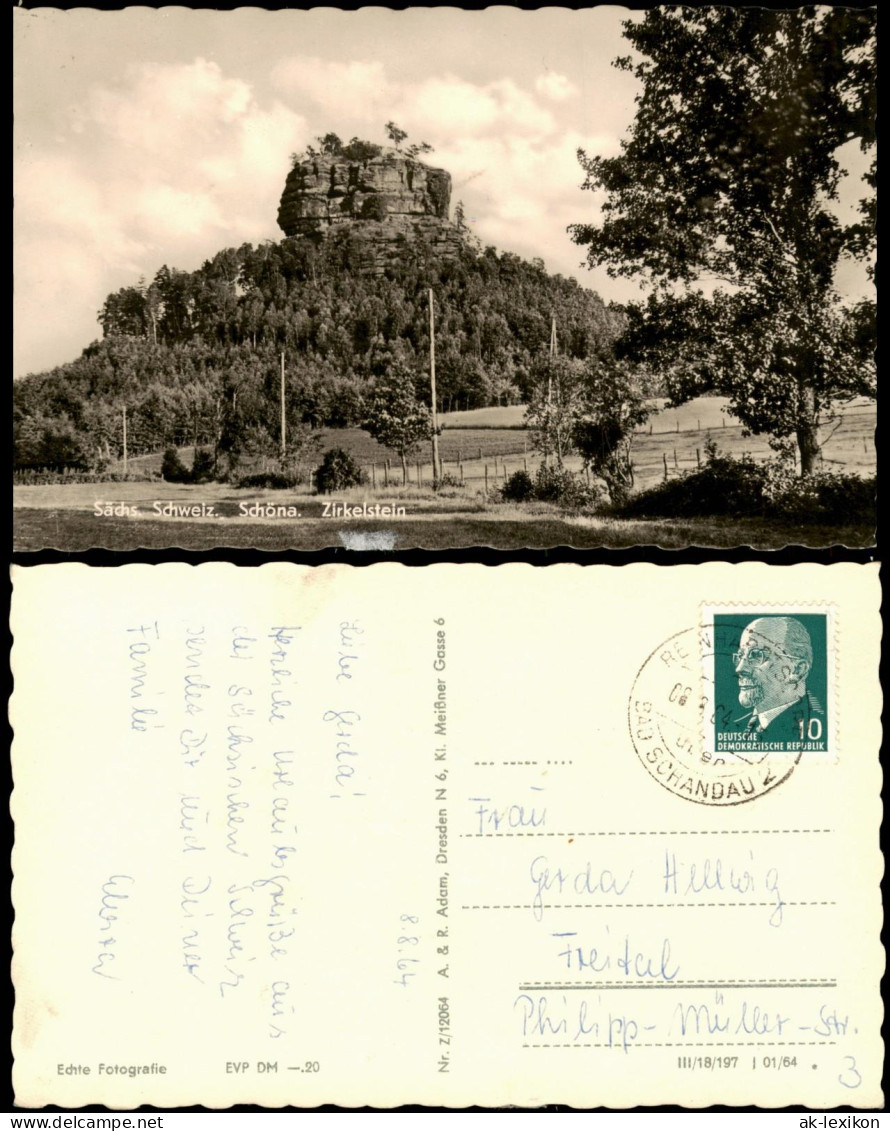 Sächs. Schweiz. Schöna. Zirkelstein
Liebe Gerda!
Herzliche Urlaubsgrüße aus
der Sächsischen Schweiz
sendet Dir und Deiner
Familie
8.8.64
Nr. Z/12064 A. & R. Adam, Dresden N 6, Kl. Meißner Gasse 6
Echte Fotografie EVP DM —.20
BAD SCHANDAU 2
10
DEUTSCHE
DEMOKRATISCHE REPUBLIK
Frau
Gerda Hellwig
Freital
Philipp-Müller-Str.
3
III/18/197 J 01/64
ak-lexikon